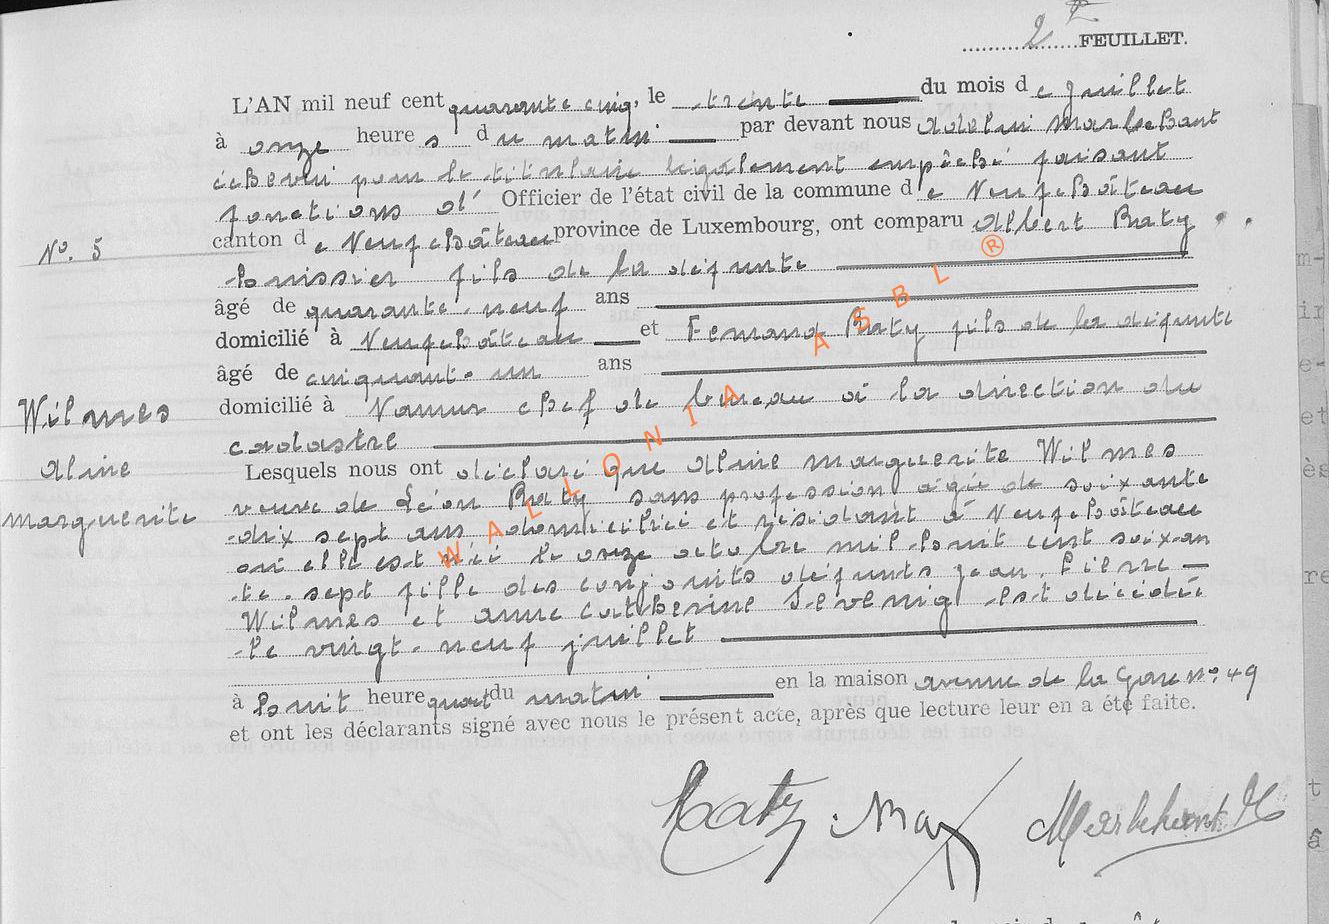 2e FEUILLET.
L'AN mil neuf cent quarante cinq, le trente du mois de juillet
à onze heures du matin par devant nous Adelin Marbehant
échevin pour le titulaire légalement empêché faisant
fonctions d' Officier de l'état civil de la commune de Neufchâteau
canton de Neufchâteau province de Luxembourg, ont comparu Albert Baty
N°. 5
huissier fils de la défunte
âgé de quarante-neuf ans
domicilié à Neufchâteau et Fernand Baty fils de la défunte
âgé de cinquante-un ans
domicilié à Namur chef de bureau à la direction du
cadastre
Wilmes
Aline
Marguerite
Lesquels nous ont déclaré que Aline Marguerite Wilmes
veuve de Léon Baty sans profession âgée de soixante
dix sept ans domiciliée et résidant à Neufchâteau
où elle est née le onze octobre mil huit cent soixan
te-sept fille des conjoints défunts Jean-Pierre
Wilmes et Anne Catherine Sevenig est décédée
le vingt-neuf juillet
à huit heure quart du matin en la maison avenue de la Gare n° 49
et ont les déclarants signé avec nous le présent acte, après que lecture leur en a été faite.
WALLONIA ASBL ®
Baty
Marbehant